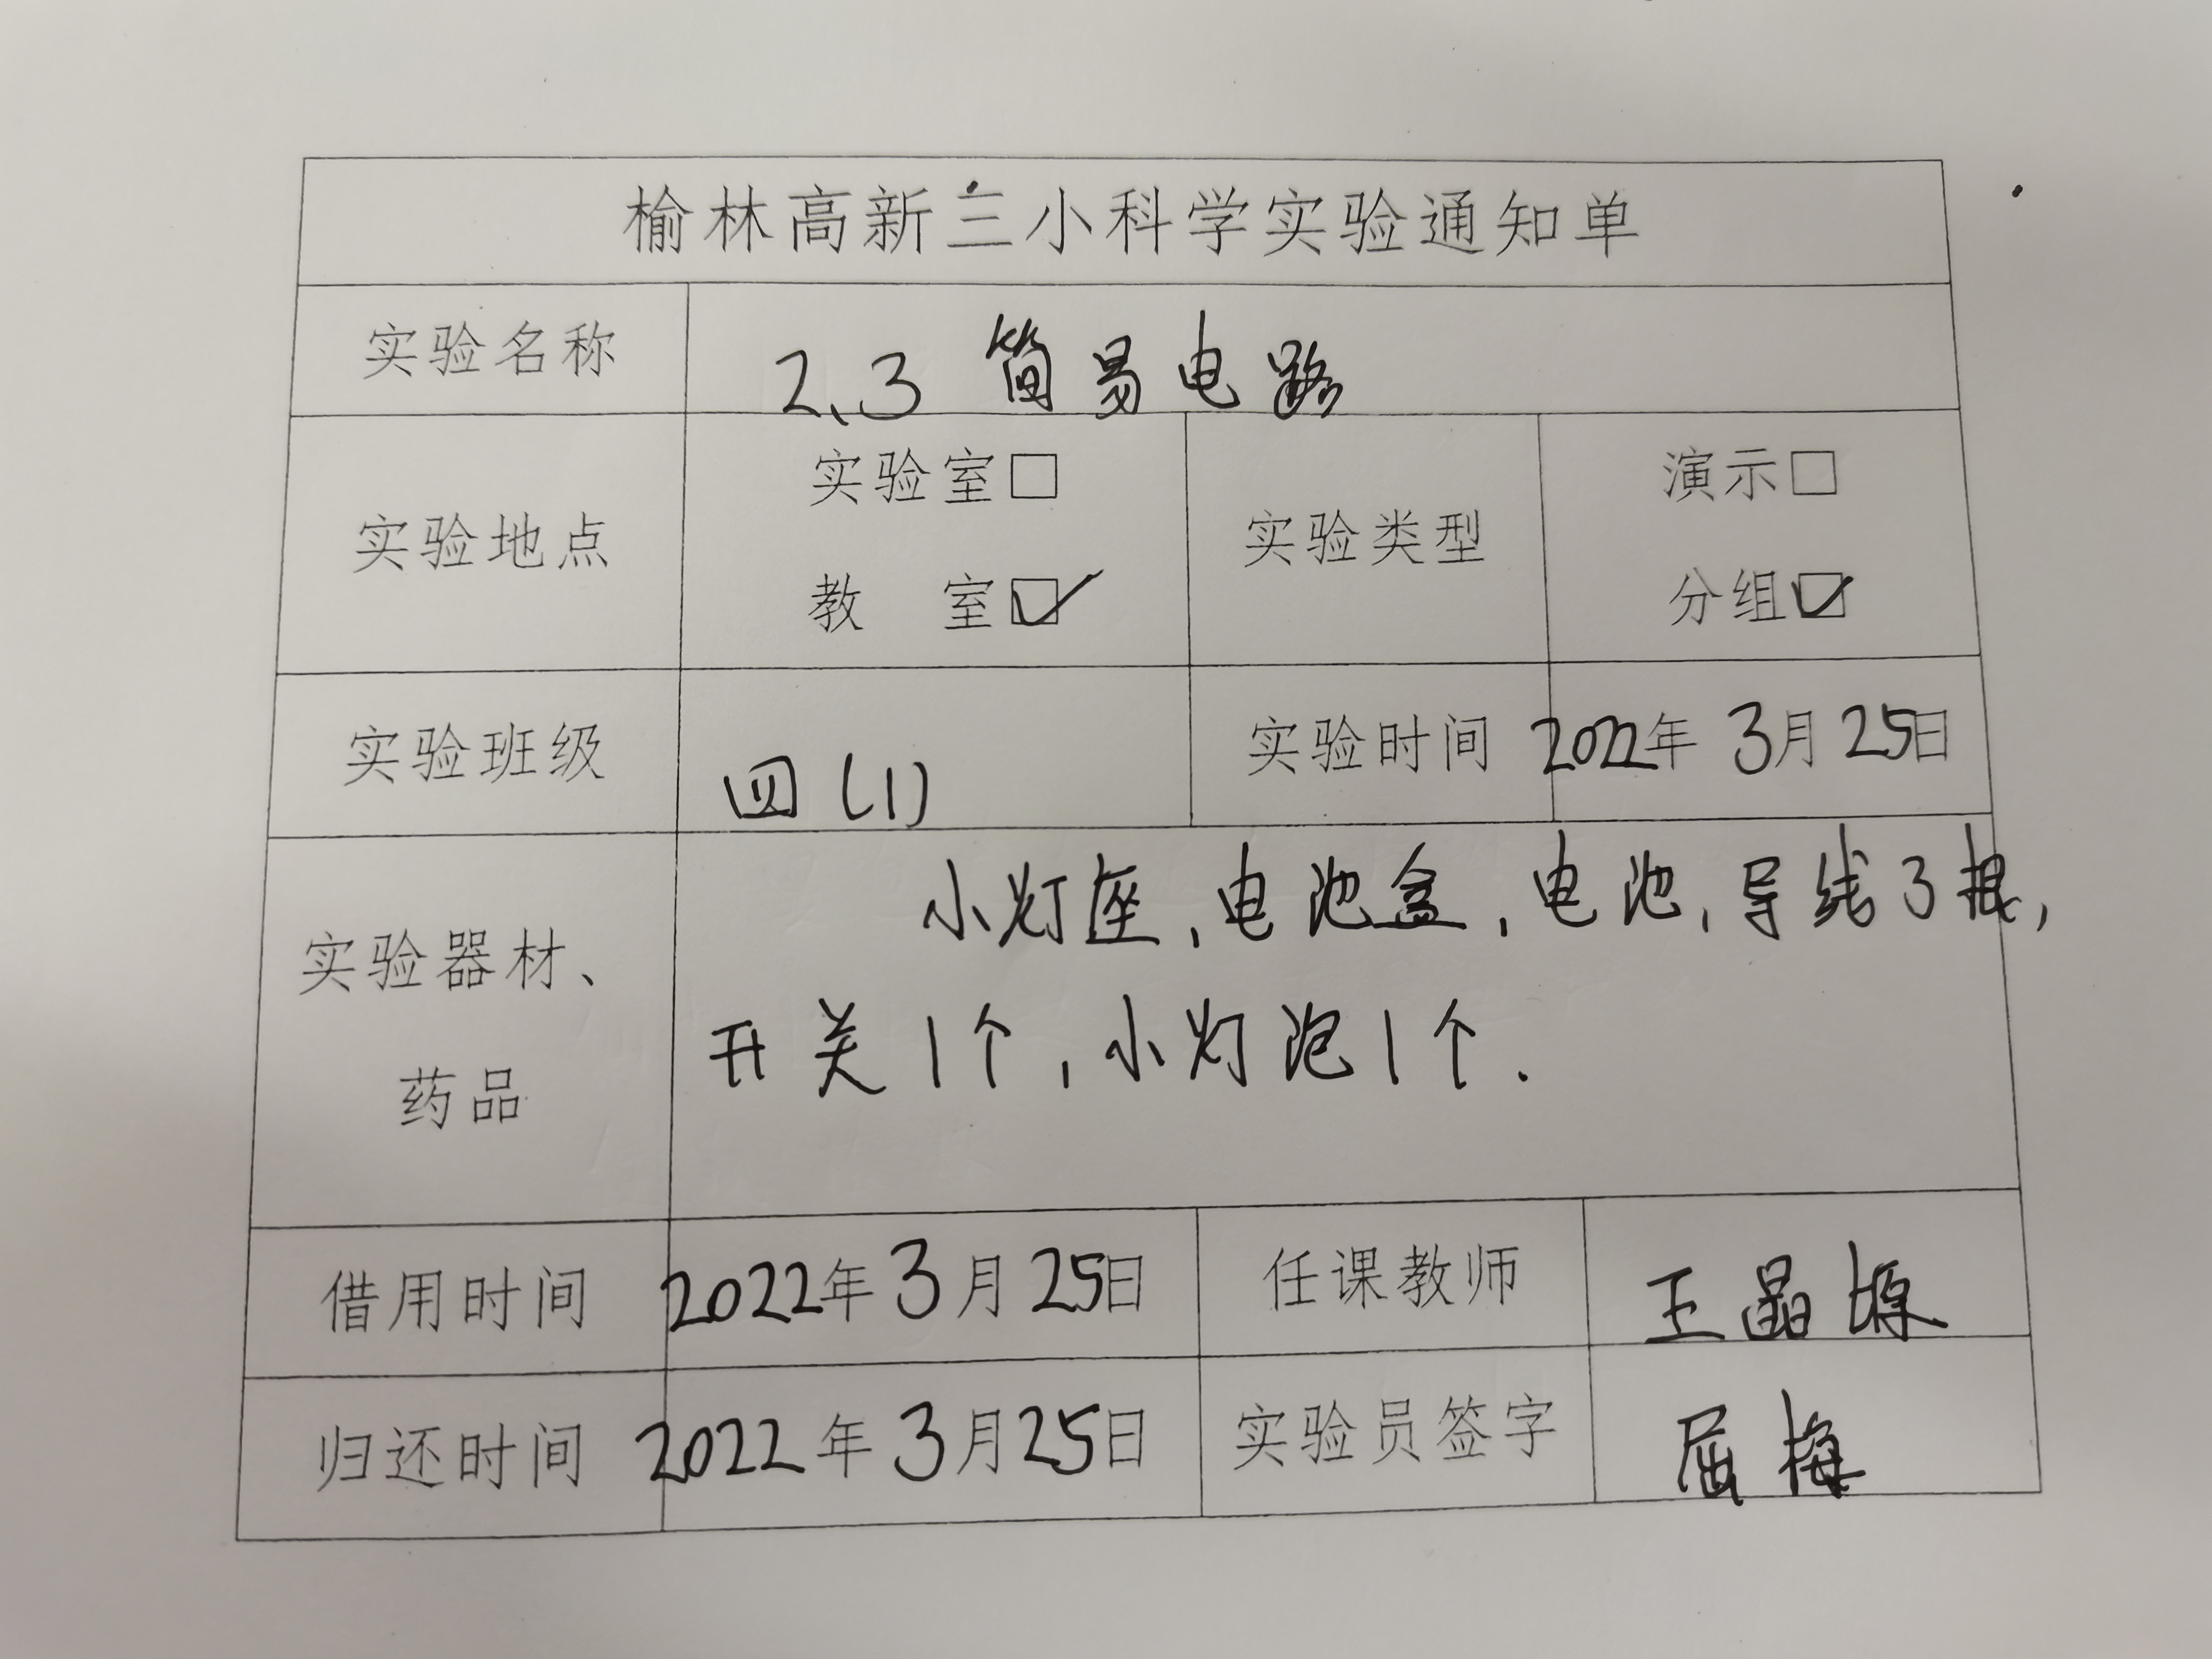 榆林高新三小科学实验通知单
实验名称 2、3 简易电路
实验地点 实验室□ 实验类型 演示□
教 室☑ 分组☑
实验班级 四(1) 实验时间 2022年 3月 25日
实验器材、 小灯座,电池盒,电池,导线3根,
药品 开关1个,小灯泡1个.
借用时间 2022年3月25日 任课教师 王晶
归还时间 2022年3月25日 实验员签字 屈梅